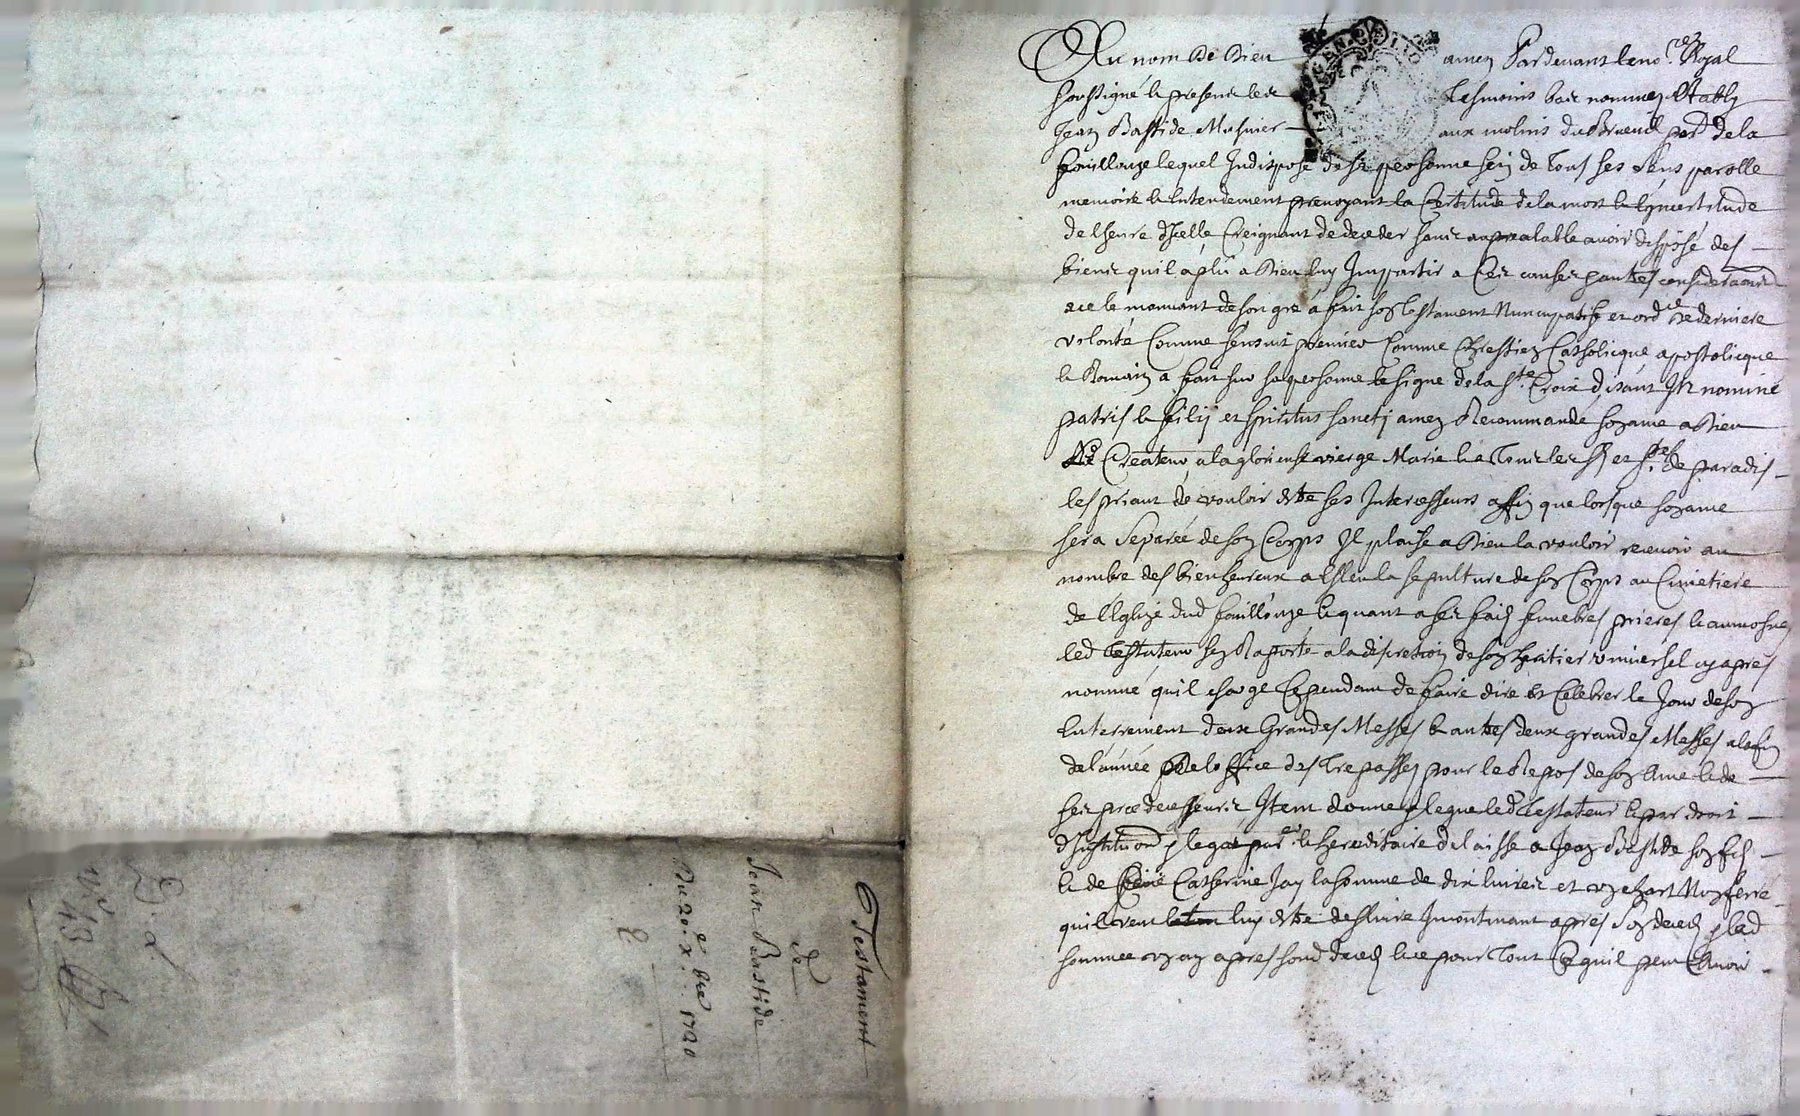 Testament
de
Jean Bastide
Du 20e xbre 1720
Au nom de Dieu amen Pardevant le nore Royal
soussigné e presens les tesmoins bas nommez Estably
Jean Bastide Musnier aux molins du pard de la
fouillouze lequel Indisposé de sa personne sein de tous ses sens parolle
memoire e Entendement prevoyant la Certitude de la mort e l'yncertitude
de lheure d'Icelle Creignant de deceder sans au prealable avoir disposé des
biens quil a plû a Dieu luy Impartir a Ces causes e autres considerations
a ce le mouvant de son gré a fait son testament Nuncupatif et ordce de derniere
volonté Comme sensuit premier Comme Chrestien Catholicque apostolicque
e Romain a fait sur sa personne le signe de la Ste Croix disant In nomine
patris e filij et spiritus sanctj amen Recommandé son ame a Dieu
Createur a la glorieuse vierge Marie e a tous les Sts et Stes de paradis
les priant de vouloir estre ses Intercesseurs affin que lorsque son ame
sera separée de son Corps Il plaise a Dieu la vouloir recevoir au
nombre des bienheureux a Esleu la sepulture de son Corps au Cimetiere
de l'Eglize dud fouillouze e quant a ses frais funebres prieres e aumosnes
led testateur sen Raporte a la discretion de son heritier universel cy apres
nommé quil charge Cependant de faire dire et Celebrer le Jour de son
Enterrement deux Grandes Messes e autres deux grandes Messes a la fin
de l'année de l'office des trepassez pour le Repos de son Ame e de
ses predecesseurs Item donne e legue led testateur e par droit
d'Institution e legat hereditaire delaisse a Jean Bastide son fils
e de Catherine Jay la somme de dix livres et
quil veut luy estre deslivré Incontinant apres son deceds e lad
somme un an apres sond deceds e ce pour tout Ce quil peut avoir